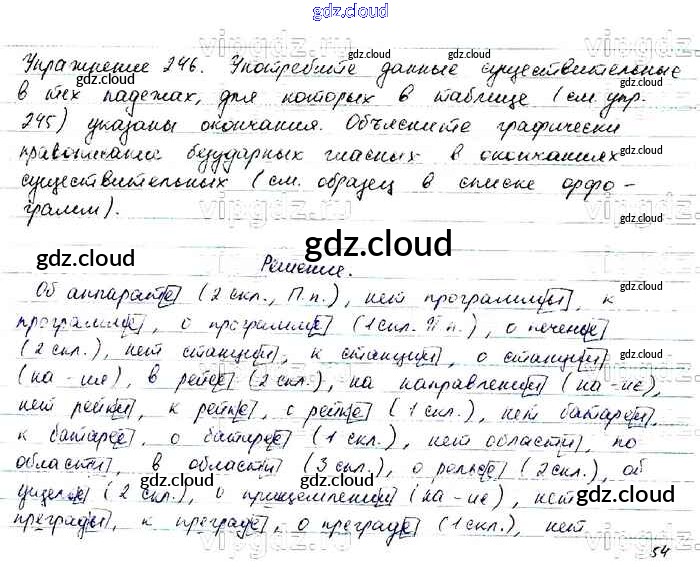 gdz.cloud
Упражнение 246. Употребите данные существительные
в тех падежах, для которых в таблице (см. упр.
245) указаны окончания. Объясните графически
правописание безударных гласных в окончаниях
существительных (см. образец в списке орфо-
грамм).
Решение.
Об аппарате (2 скл., П.п.), нет программы, к
программе, о программе (1 скл. П.п.), о печенье
(2 скл.), нет станции, к станции, о станции
(на -ия), в рейсе (2 скл.), на направлении (на -ие),
нет рейки, к рейке, о рейке (1 скл.), нет батареи,
к батарее, о батарее (1 скл.), нет области, по
области, в области (3 скл.), о рельсе (2 скл.), об
ущелье (2 скл.), о прищемлении (на -ие), нет
преграды, к преграде, о преграде (1 скл.), нет
54